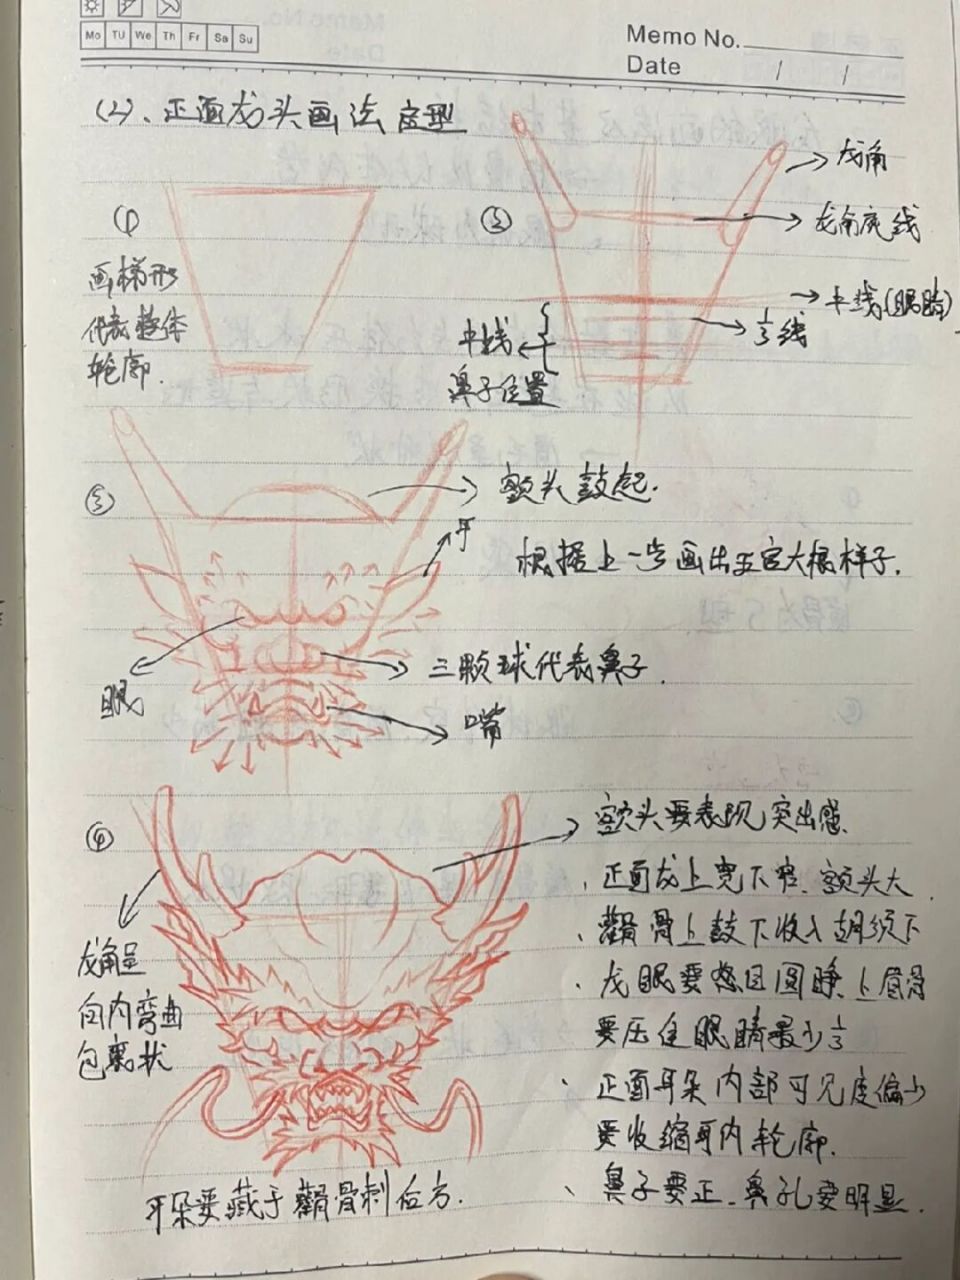 Mo TU We Th Fr Sa Su
Memo No.
Date / /
(2)、正面龙头画法定型
①
画梯形
代表整体
轮廓.
②
龙角
龙角底线
中线(眼睛)
1/3线
中线
鼻子位置
③
额头鼓起.
耳
根据上一步画出五官大概样子.
眼
三颗球代表鼻子.
嘴
④
额头要表现突出感.
、正面龙上宽下窄、额头大
、颧骨上鼓下收入胡须下
、龙眼要怒目圆睁上眉骨
要压住眼睛最少1/3
、正面耳朵内部可见度偏少
要收缩耳内轮廓.
、鼻子要正、鼻孔要明显.
龙角呈
向内弯曲
包裹状
耳朵要藏于颧骨刺后方.